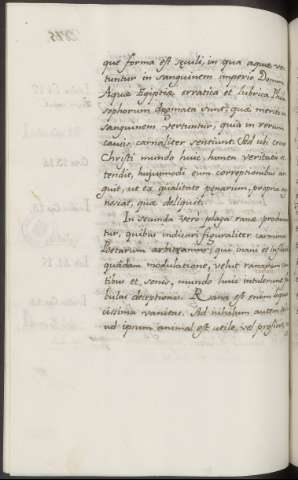 que forma est servili, in qua aquæ ver
tuntur in sanguinem imperio Domini
Aquæ Egyptiæ erratica et lubrica Phi
losophorum dogmata sunt, quæ merito in
sanguinem vertuntur, quia in rerum
causis carnaliter sentiunt. Sed ubi crux
Christi mundo huic lumen veritatis os
tendit, hujusmodi eum correptionibus ar
guit, ut ex qualitate penarum, propria ag
noscat, quæ deliquit.
In secunda vero plaga ranæ producun
tur, quibus indicari figuraliter carmina
Poetarum arbitramur, qui inani et inflata
quadam modulatione, velut ranarum can
tibus et sonis, mundo huic intulerunt fa
bulas deceptionis. Rana est enim loqua
cissima vanitas. Ad nihilum autem
ud ipsum animal est utile, vel proficit,